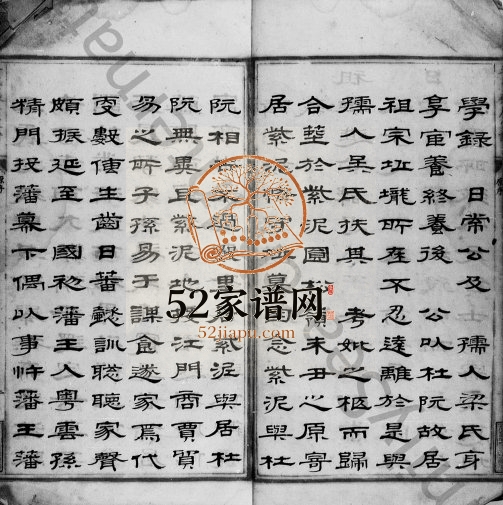 學錄 日常公及士 孺人梁氏身
享甯養終養後 公以杜阮故居
祖宗坵壠所在不忍遠離於是與
孺人吳氏扶其 考妣之柩而歸
合塟於紫泥圓 未丑之原寄
居紫泥 守 墓 念紫泥與杜
阮相 來過 里 紫泥與居杜
阮無異且紫泥地 江門商賈貿
易之所子孫易于謀食遂家焉代
更數傳生齒日蕃懿訓聰聽家聲
頗振延至 國初藩王入粵雲孫
精門投藩幕下偶以事忤藩王藩
52家谱网
52jiapu.com